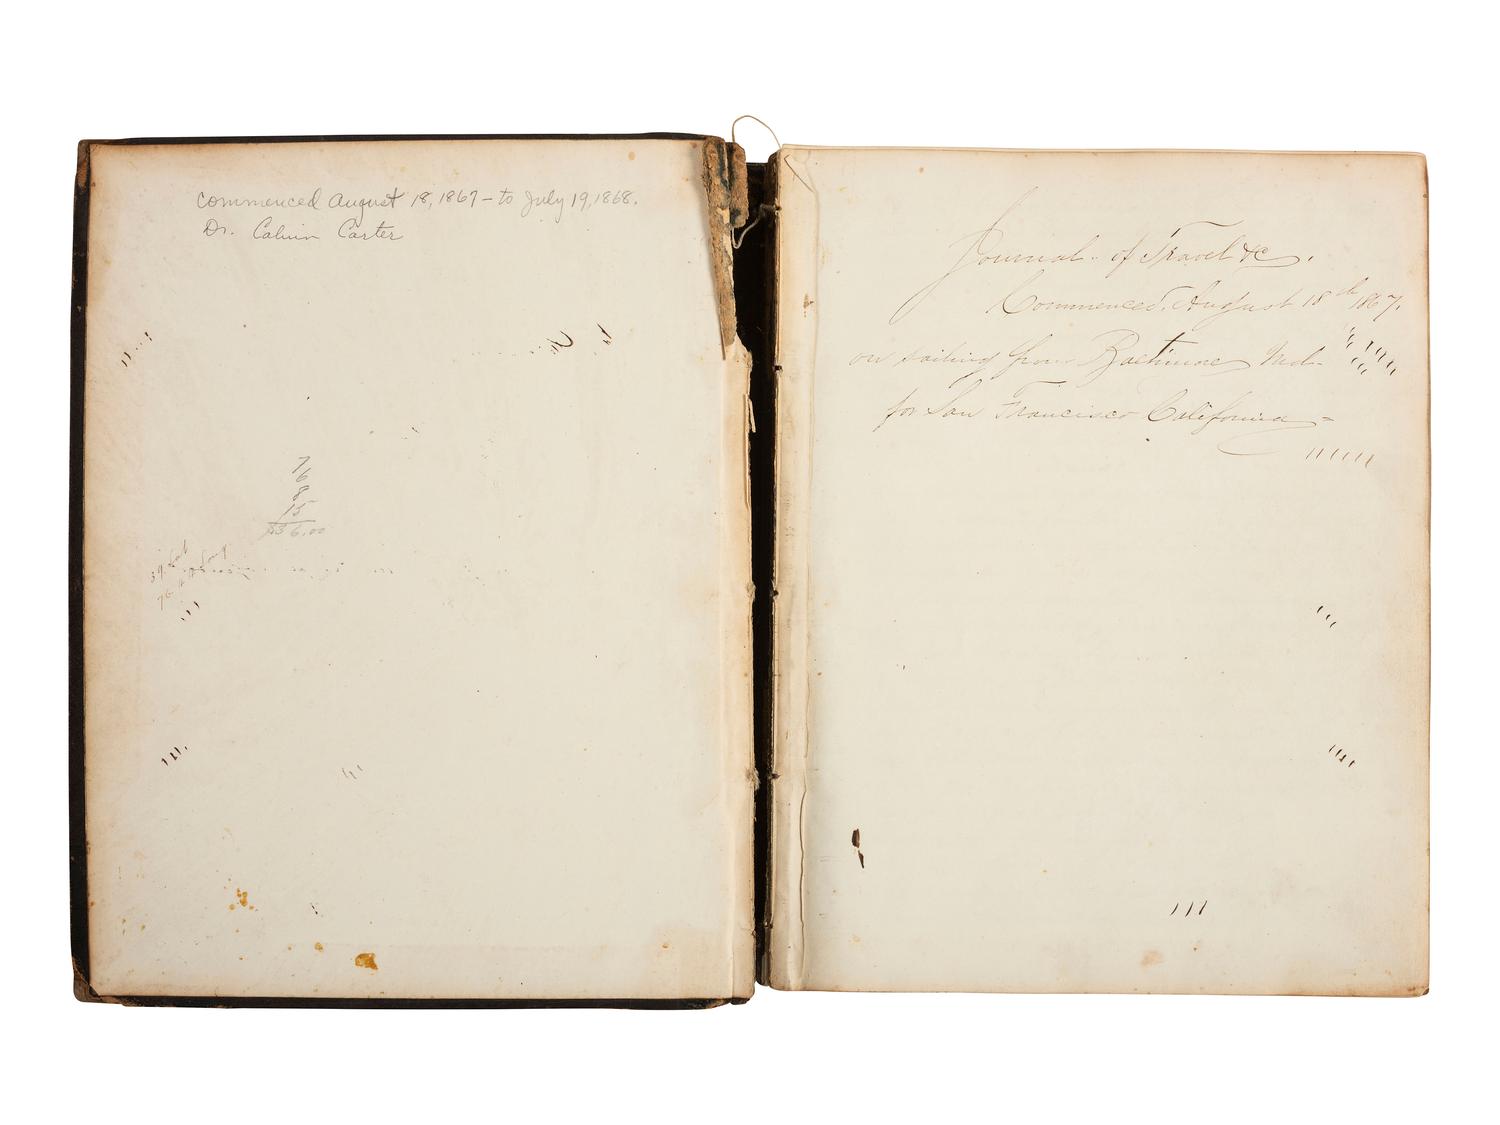 commenced August 18, 1867 – to July 19, 1868.
Dr. Calvin Carter
7
6
8
15
$36.00
39 Lat
76 Long
Journal of Travel &c.
Commenced, August 18th 1867,
on sailing from Baltimore Md.
for San Francisco California =